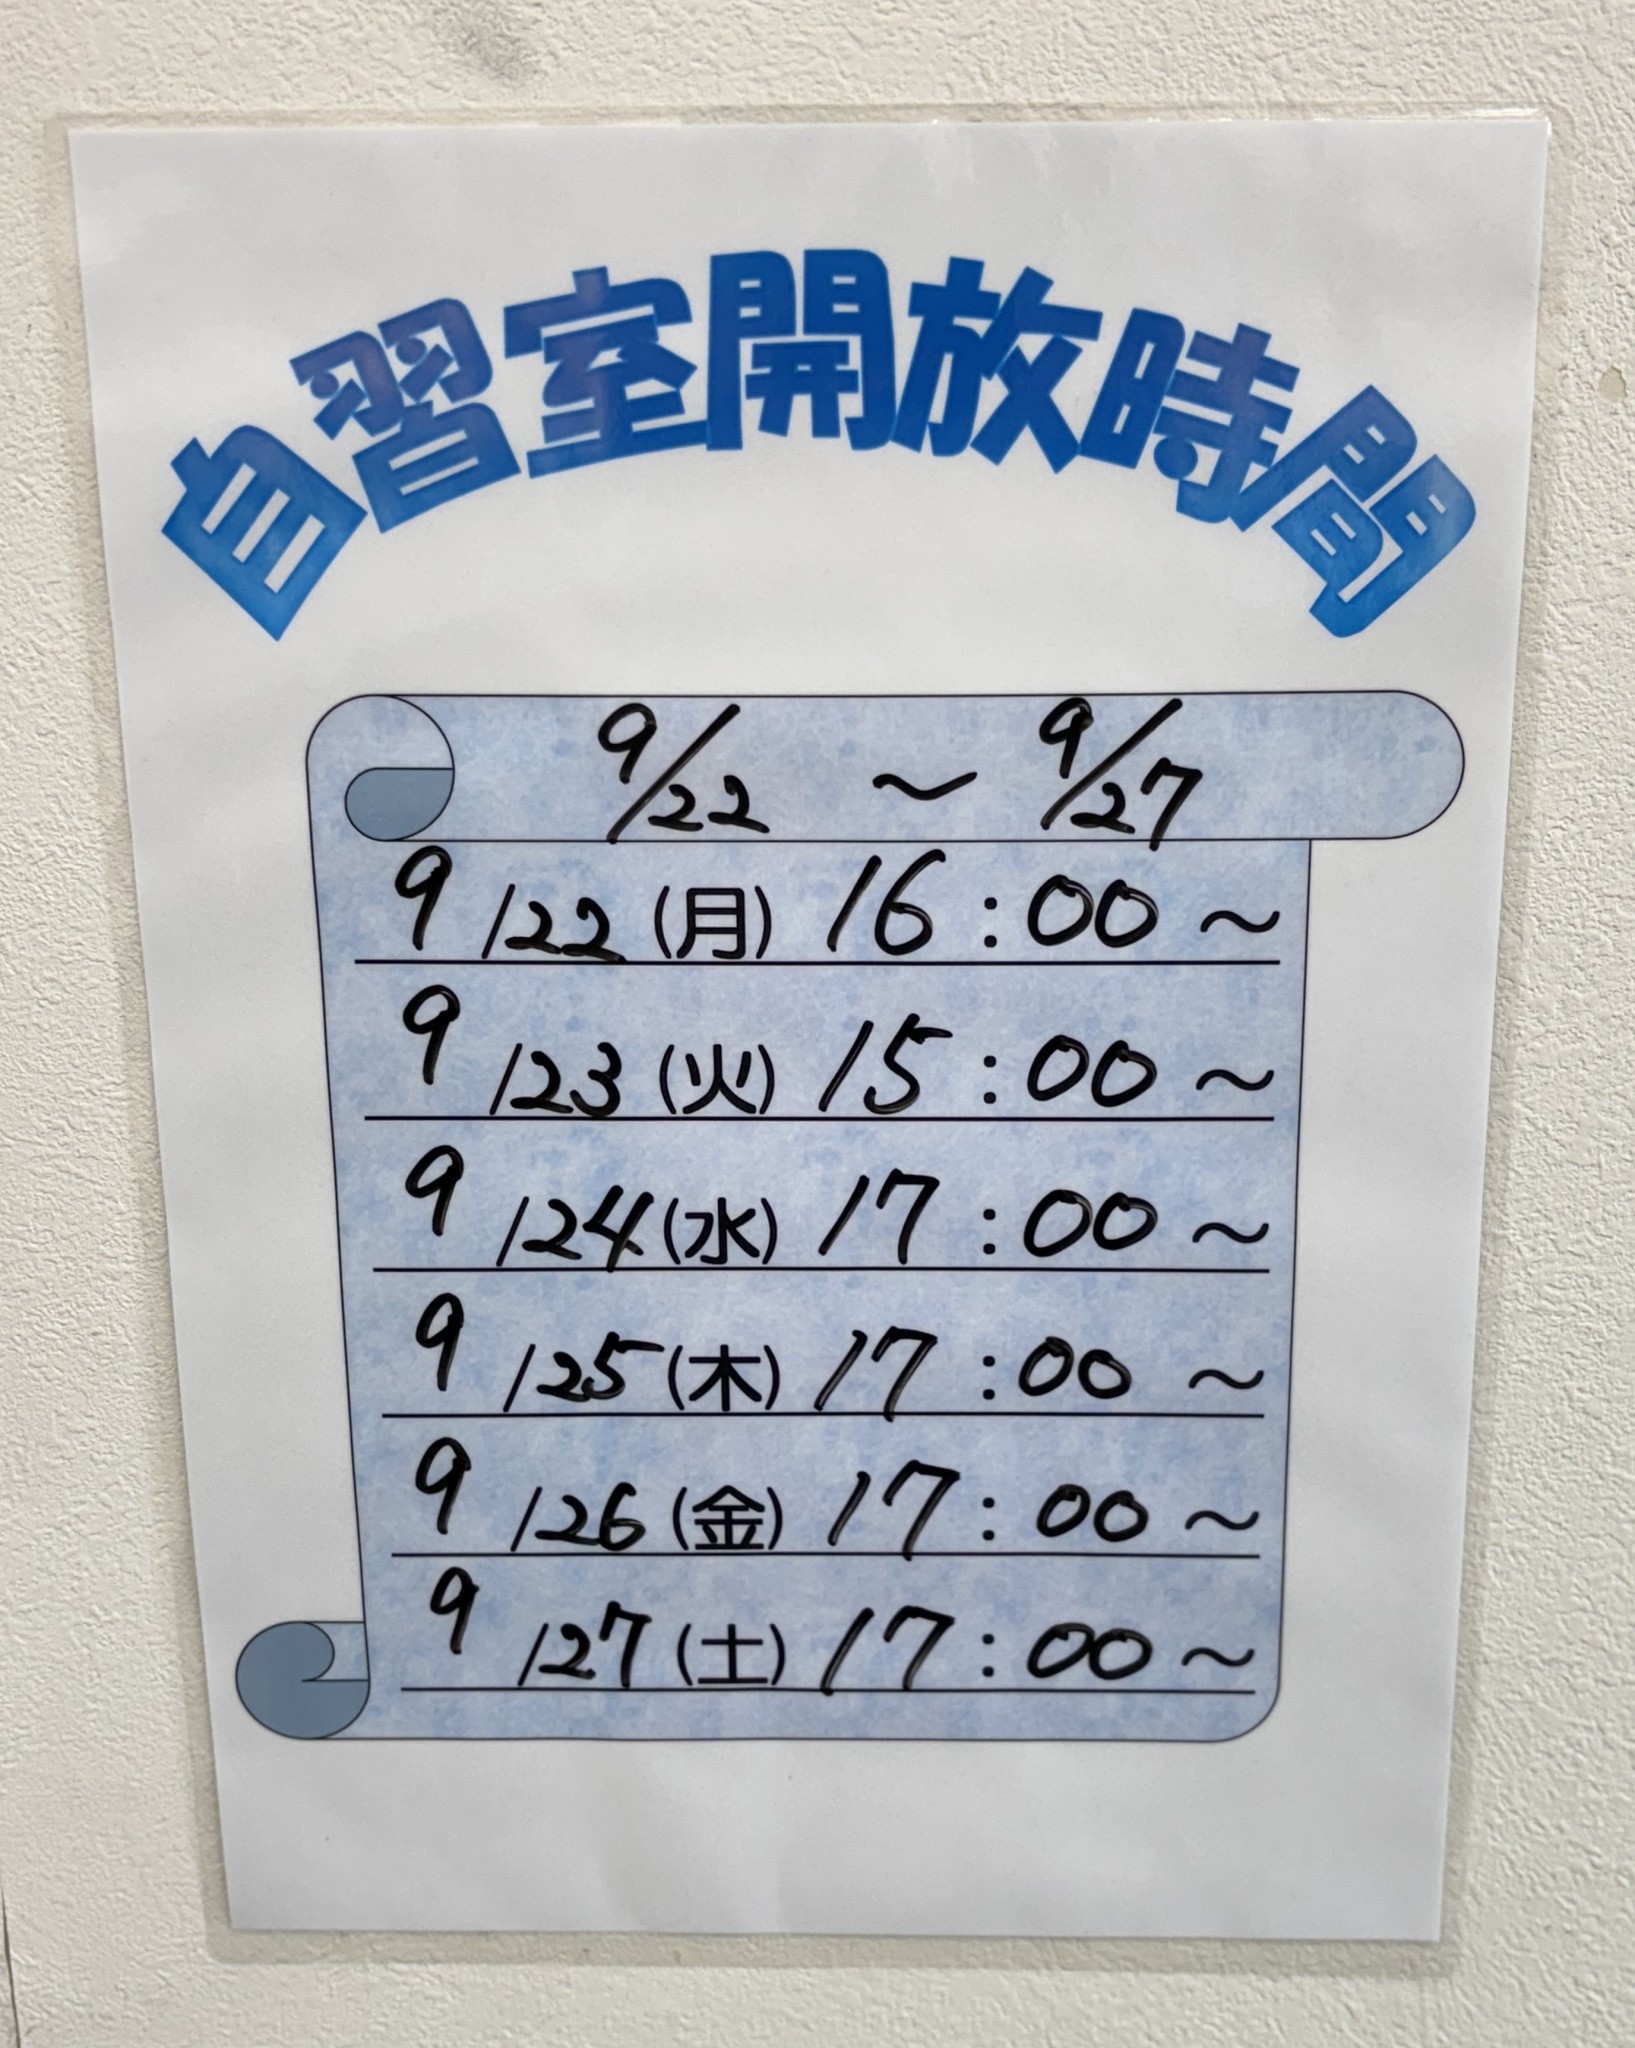 自習室開放時間
9/22 〜 9/27
9/22(月) 16:00〜
9/23(火) 15:00〜
9/24(水) 17:00〜
9/25(木) 17:00〜
9/26(金) 17:00〜
9/27(土) 17:00〜